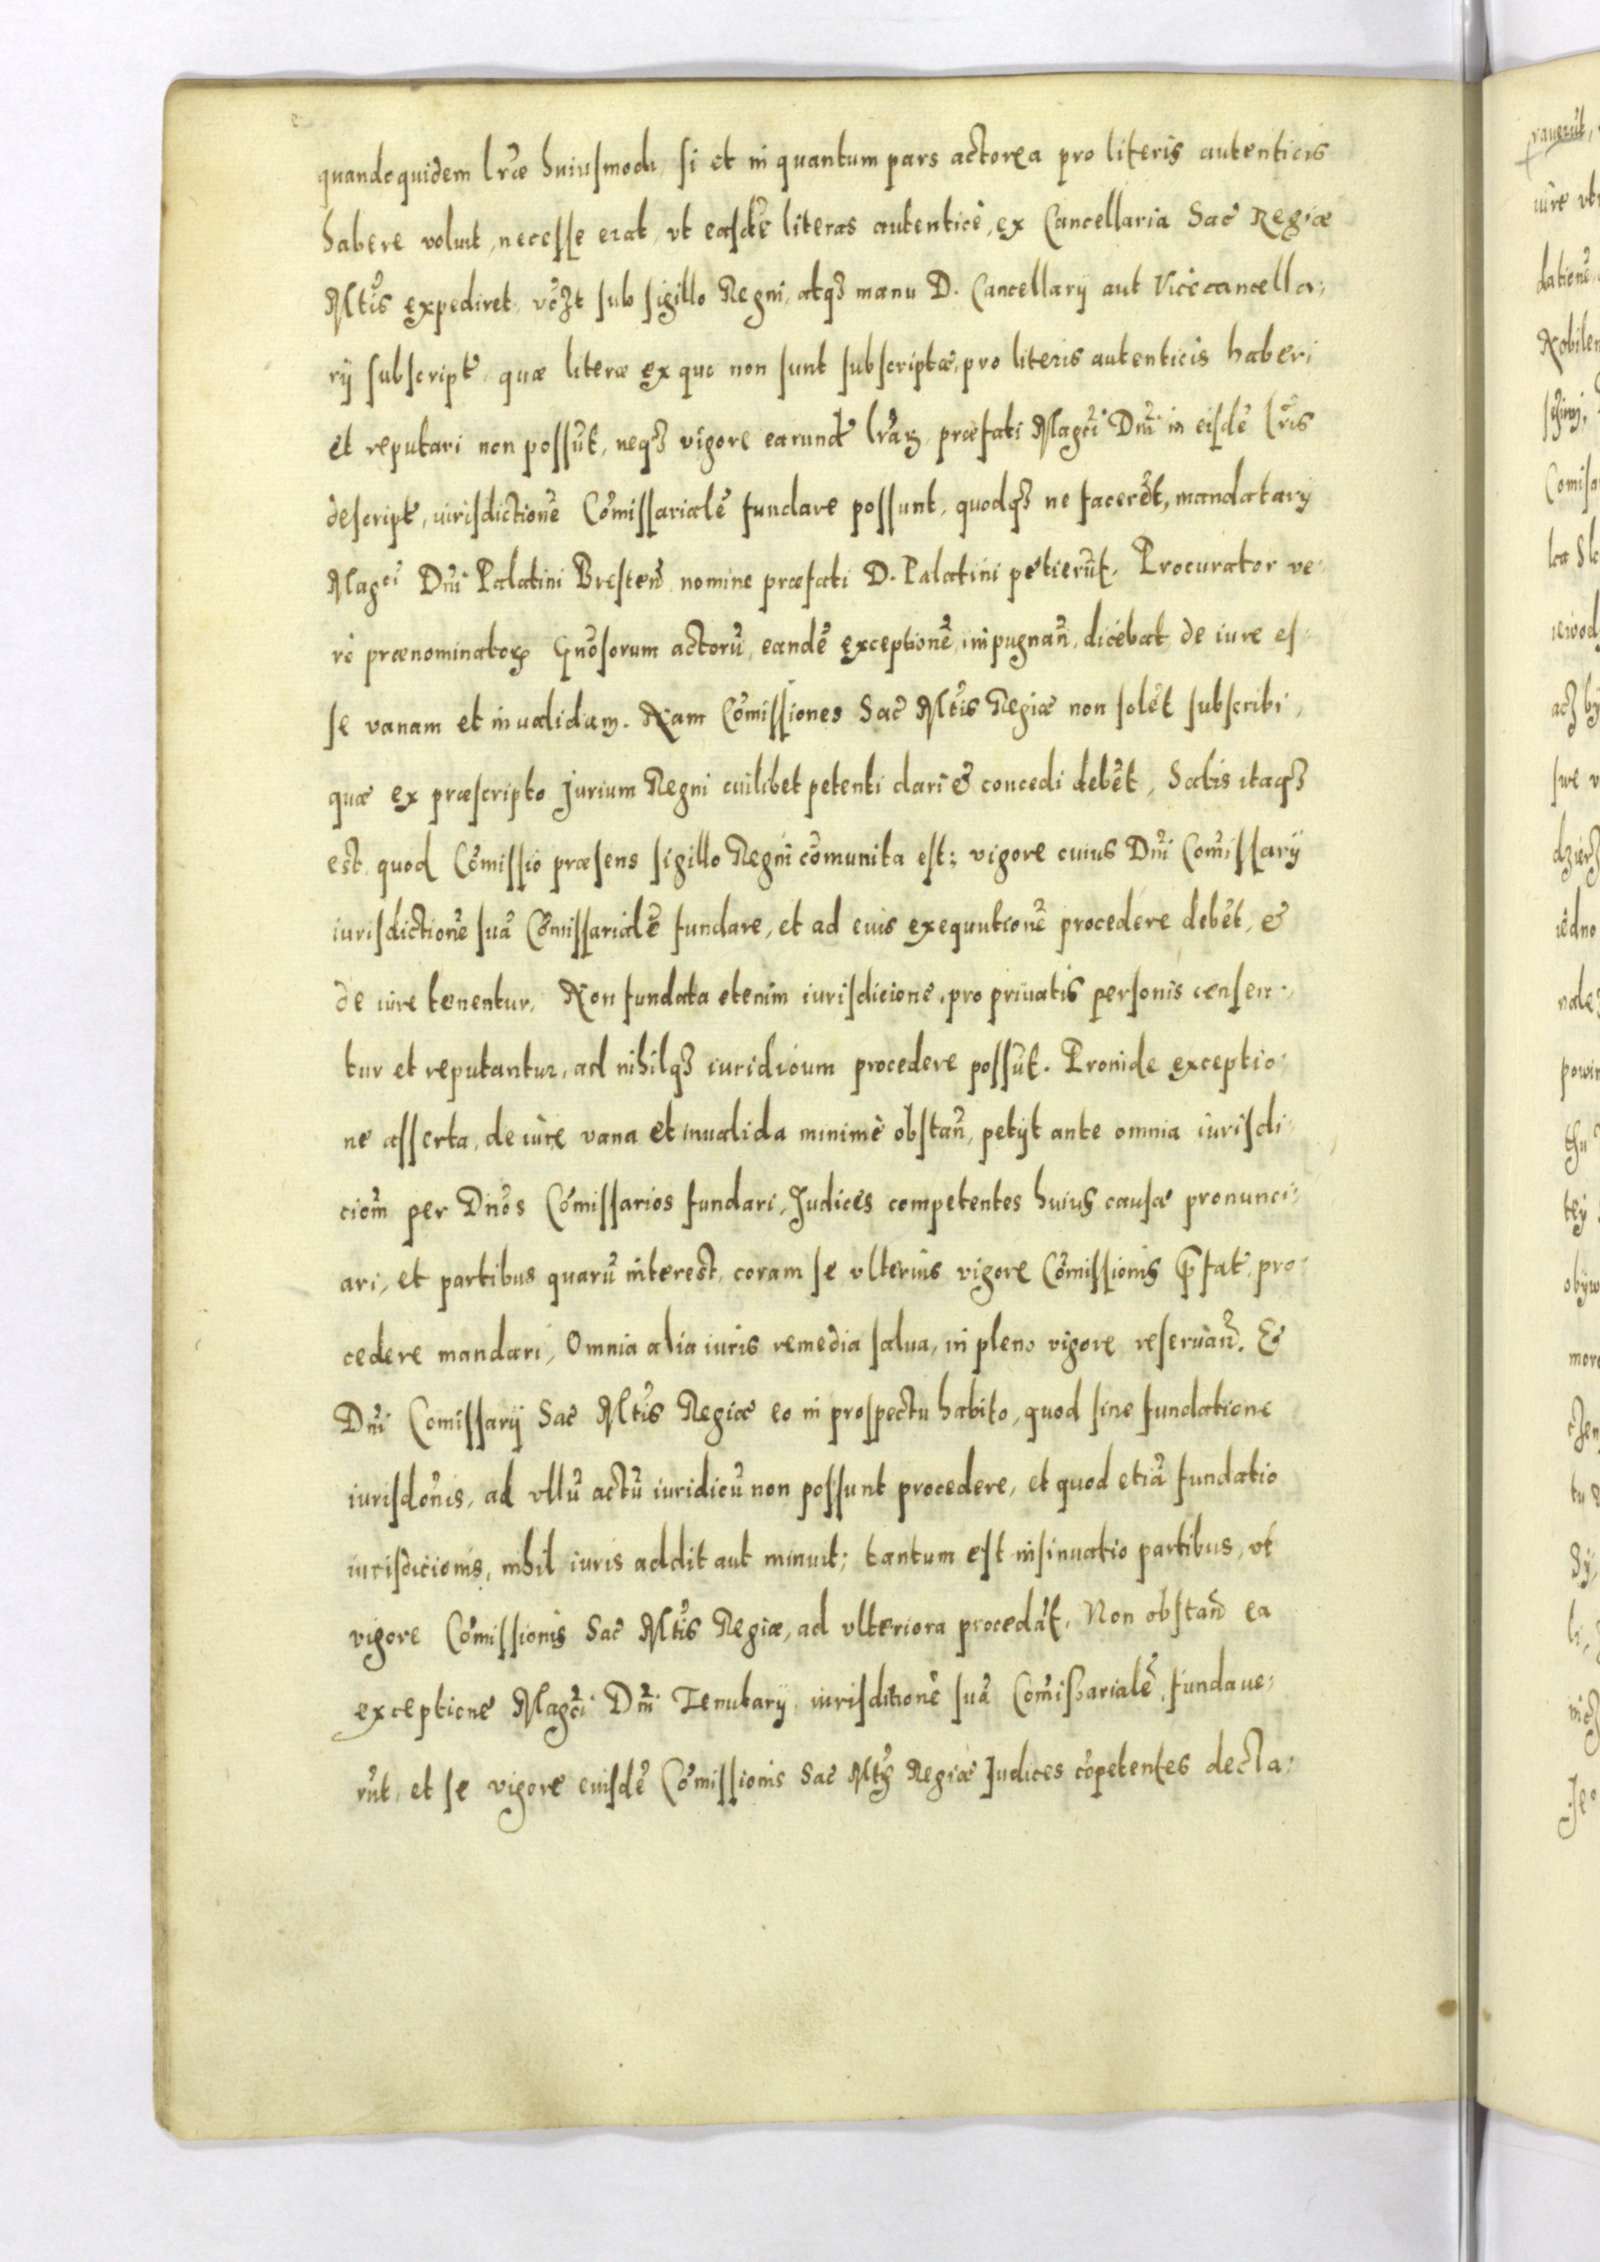 quandoquidem lrãe huiusmodi, si et in quantum pars actorea pro literis autenticis
habere voluit, necesse erat, vt easdẽ literas autenticè, ex Cancellaria Sac̃ Regiæ
Mtĩs expediret, sub sigillo Regni, atq̃ manu D. Cancellarÿ aut Vicecancella:
rÿ subscript̃, quæ literæ ex quo non sunt subscriptæ, pro literis autenticis haberi
et reputari non possũt, neq̃ vigore earund̃ lrãꝝ, præfati Magc̃i Dñi in eisdẽ lrĩs
descript̃, iurisdictionẽ Cõmissarialẽ fundare possunt, quodq̃ ne facerẽt, mandatarÿ
Magc̃i Dñi Palatini Brestẽn nomine præfati D. Palatini petierũt. Procurator ve:
rò prænominatoꝝ Gñosorum actorũ, eandẽ exceptionẽ impugnañ, dicebat de iure es:
se vanam et inualidam. Nam Cõmissiones Sac̃ Mtĩs Regiæ non solẽt subscribi,
quæ ex præscripto Jurium Regni cuilibet petenti dari & concedi debẽt, Satis itaq̃
est, quod Cõmissio præsens sigillo Regni cõmunita est; vigore cuius Dñi Cõmissarÿ
iurisdictionẽ suã Cõmissarialẽ fundare, et ad euis exequutionẽ procedere debẽt, &
de iure tenentur. Non fundata etenim iurisdicione, pro priuatis personis censen:
tur et reputantur, ad nihilq̃ iuridicum procedere possũt. Proinde exceptio:
ne asserta, de iure vana et inualida minimè obstañ, petÿt ante omnia iurisdi:
cioñm per Dños Cõmissarios fundari, Judices competentes huius causæ pronunci:
ari, et partibus quarũ interest, coram se vlterius vigore Cõmissionis p̃fat̃, pro:
cedere mandari, Omnia alia iuris remedia salua, in pleno vigore reseruañ. &
Dñi Comissarÿ Sac̃ Mtĩs Regiæ eo in prospectu habito, quod sine fundatione
iurisdõnis, ad vllũ actũ iuridicũ non possunt procedere, et quod etiã fundatio
iurisdicionis, nihil iuris addit aut minuit; tantum est insinuatio partibus, vt
vigore Cõmissionis Sac̃ Mtĩs Regiæ, ad vlteriora procedãt. Non obstañ ea
exceptione Magc̃i Dñi Tenutarÿ, iurisditionẽ suã Cõmissarialẽ fundaue:
rũt, et se vigore euisdẽ Cõmissionis Sac̃ Mtĩs Regiæ Judices cõpetentes decla: